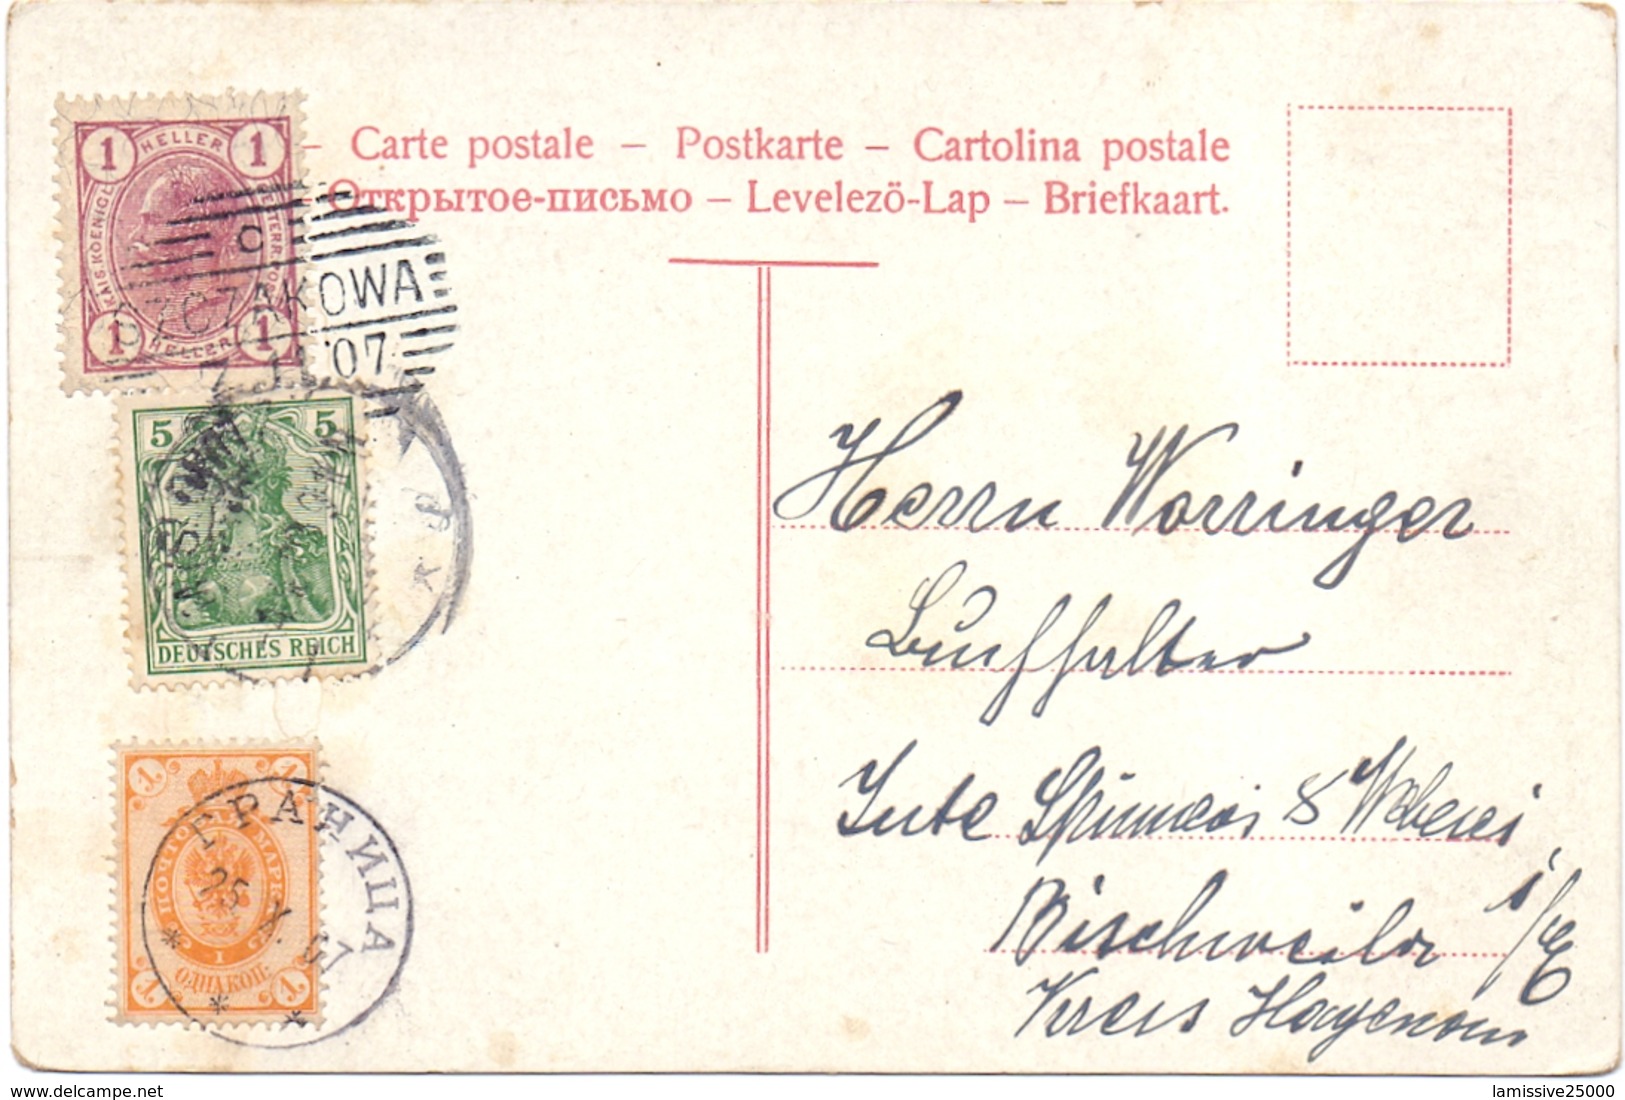 – Carte postale – Postkarte – Cartolina postale
Открытое-письмо – Levelezö-Lap – Briefkaart.
1 HELLER 1
KAIS. KOENIGL.
1 HELLER 1
C
SZCZAKOWA
7 11 07
5 5
DEUTSCHES REICH
1 1
ПОЧТОВАЯ МАРКА
1
ОДНА КОП.
1 1
ГРАНИЦА
25 X. 07
Herrn Worringer
Buchhalter
Jute Spinnerei & Weberei
Bischweiler i/E
Kreis Hagenau
delcampe.net
lamissive25000